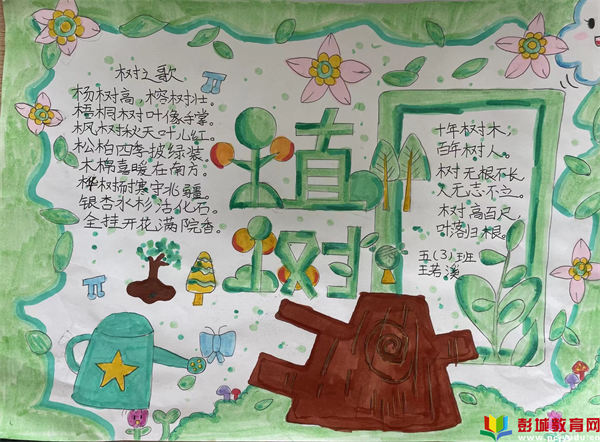 树之歌
杨树高，榕树壮。
梧桐树叶像手掌。
枫树秋天叶儿红。
松柏四季披绿装。
木棉喜暖在南方。
桦树耐寒守北疆。
银杏水杉活化石。
全挂开花满院香。
植
树
十年树木，
百年树人。
树无根不长
人无志不立。
树高百尺，
叶落归根。
五(3)班
王若溪
彭城教育网